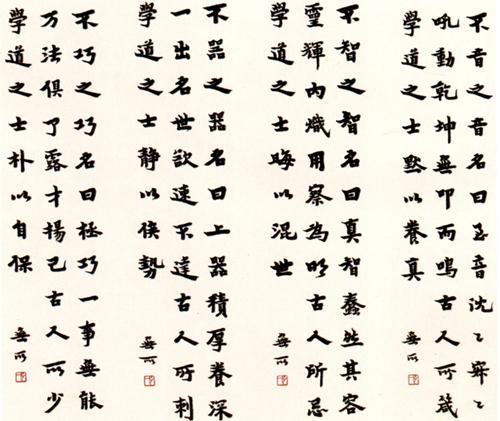 不音之音名曰至音沈〻寂〻
吼動乾坤無叩而鳴古人所箴
學道之士默以養真
無所
不智之智名曰真智蠢然其容
靈輝內熾用察為明古人所忌
學道之士晦以混世
無所
不器之器名曰上器積厚養深
一出名世欲速不達古人所刺
學道之士靜以俟勢
無所
不巧之巧名曰極巧一事無能
万法俱了露才揚己古人所少
學道之士朴以自保
無所